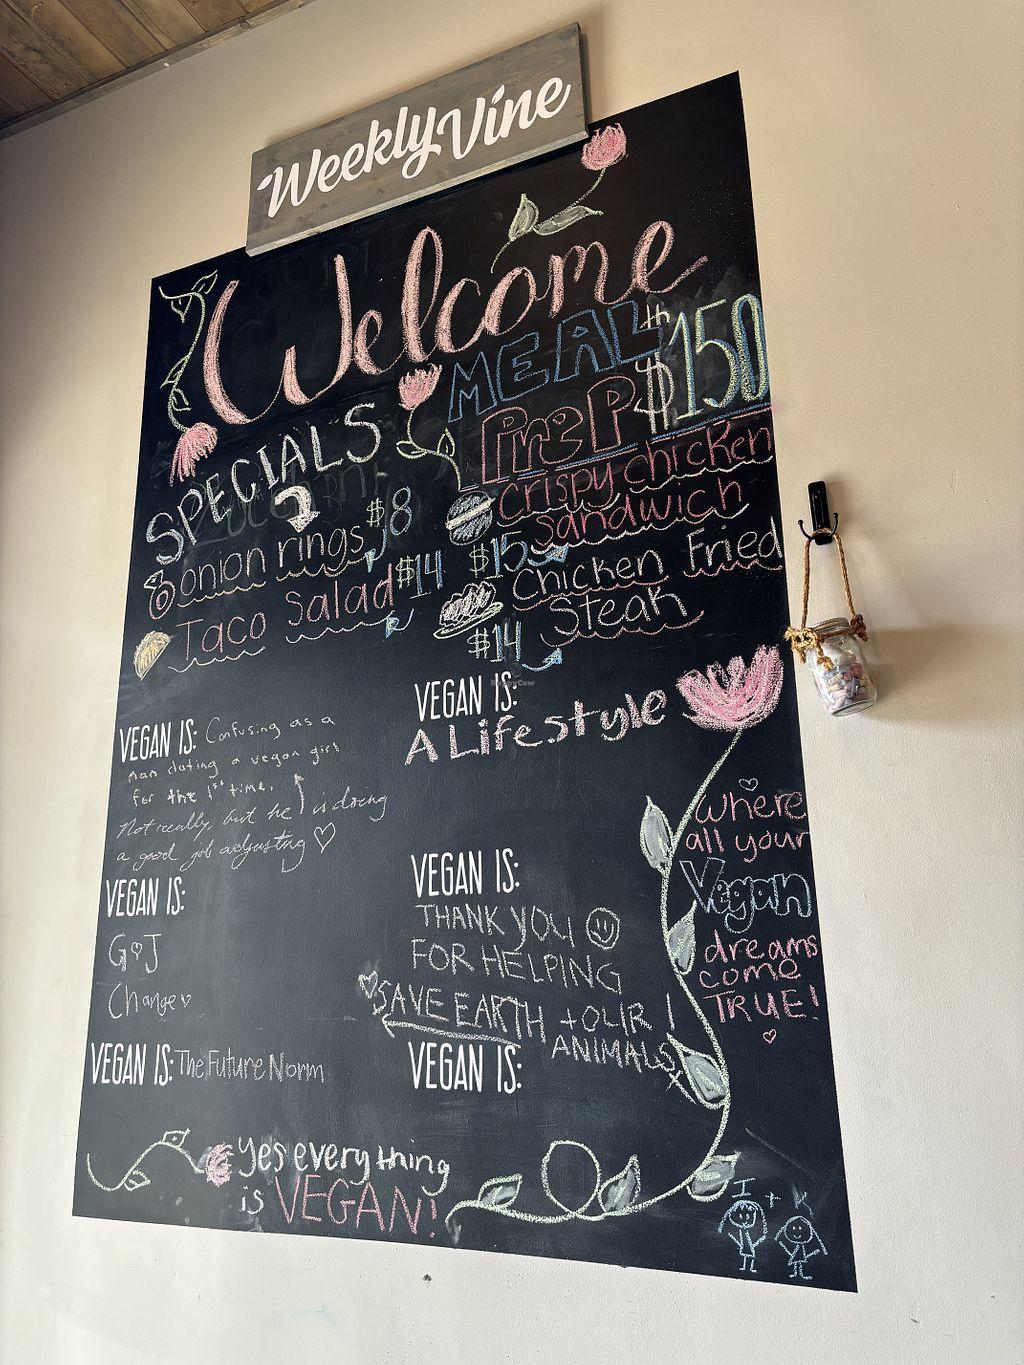 Weekly Vine
Welcome
MEAL
Prep
th
$150
SPECIALS
onion rings $8
Taco Salad $14
Crispy chicken
sandwich
$15
Chicken Fried
Steak
$14
HappyCow
VEGAN IS: Confusing as a
man dating a vegan girl
for the 1st time.
Not really, but he is doing
a good job adjusting
VEGAN IS:
G J
Change
VEGAN IS: The Future Norm
VEGAN IS:
A Lifestyle
VEGAN IS:
THANK YOU
FOR HELPING
SAVE EARTH + OUR
ANIMALS
x
VEGAN IS:
where
all your
Vegan
dreams
come
TRUE!
yes everything
is VEGAN!
I + K